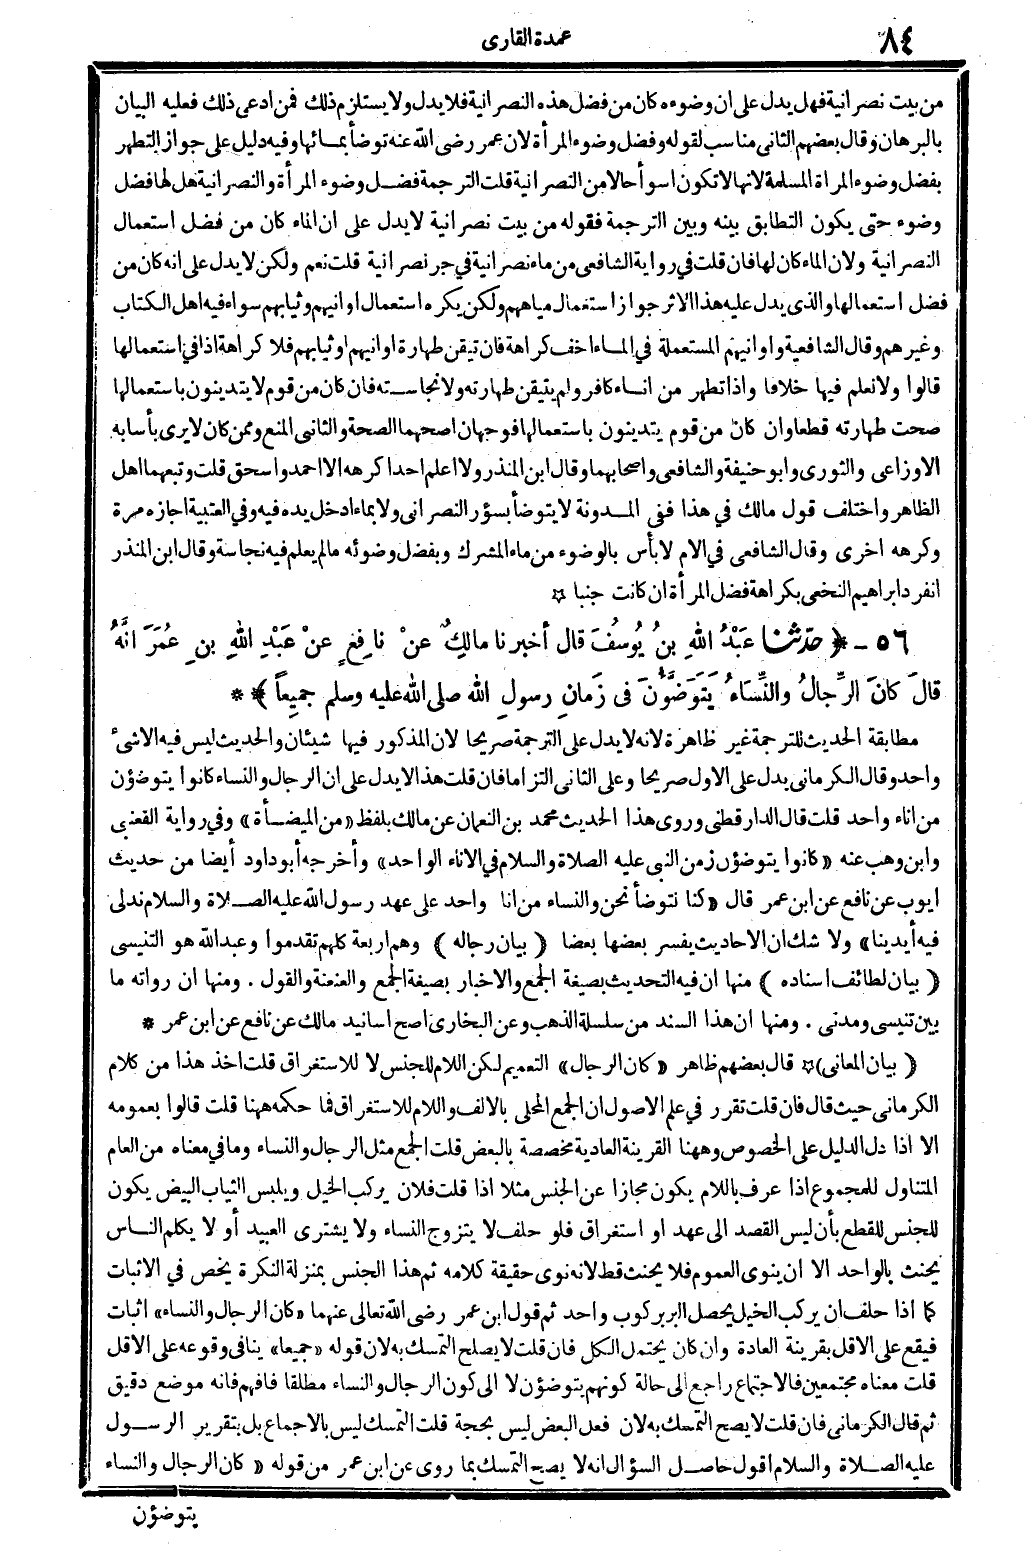 ٨٤
عمدة القارى
من بيت نصرانية فهل يدل على ان وضوءه كان من فضل هذه النصرانية فلا يدل ولا يستلزم ذلك فمن ادعى ذلك فعليه البيان
بالبرهان وقال بعضهم الثانى مناسب لقوله وفضل وضوء المرأة لان عمر رضى الله عنه توضأ بمائها وفيه دليل على جواز التطهر
بفضل وضوء المراة المسلمة لانها لا تكون اسوأ حالا من النصرانية قلت الترجمة فضل وضوء المرأة والنصرانية هل لها فضل
وضوء حتى يكون التطابق بينه وبين الترجمة فقوله من بيت نصرانية لا يدل على ان الماء كان من فضل استعمال
النصرانية ولان الماء كان لها فان قلت في رواية الشافعى من ماء نصرانية في جر نصرانية قلت نعم ولكن لا يدل على انه كان من
فضل استعمالها والذى يدل عليه هذا الاثر جواز استعمال مياههم ولكن يكره استعمال اوانيهم وثيابهم سواء فيه اهل الكتاب
وغيرهم وقال الشافعية واوانيهم المستعملة في الماء اخف كراهة فان تيقن طهارة اوانيهم او ثيابهم فلا كراهة اذا في استعمالها
قالوا ولا نعلم فيها خلافا واذا تطهر من اناء كافر ولم يتيقن طهارته ولا نجاسته فان كان من قوم لا يتدينون باستعمالها
صحت طهارته قطعا وان كان من قوم يتدينون باستعمالها فوجهان اصحهما الصحة والثانى المنع وممن كان لا يرى بأسا به
الاوزاعى والثورى وابو حنيفة والشافعى واصحابهما وقال ابن المنذر ولا اعلم احدا كرهه الا احمد واسحق قلت وتبعهما اهل
الظاهر واختلف قول مالك في هذا ففى المدونة لا يتوضأ بسؤر النصرانى ولا بماء ادخل يده فيه وفي العتبية اجازه مرة
وكرهه اخرى وقال الشافعى في الام لا بأس بالوضوء من ماء المشرك وبفضل وضوئه مالم يعلم فيه نجاسة وقال ابن المنذر
انفرد ابراهيم النخعى بكراهة فضل المرأة ان كانت جنبا ☆
٥٦ - ﴿ حدّثنا عَبْدُ اللهِ بنُ يُوسُفَ قال أخبرنا مالكٌ عنْ نافِعٍ عنْ عَبْدِ اللهِ بنِ عُمَرَ انَّهُ
قالَ كانَ الرِّجالُ والنِّسَاءُ يَتَوَضَّؤُنَ فى زَمانِ رسولِ الله صلى الله عليه وسلم جميعاً ﴾ * *
مطابقة الحديث للترجمة غير ظاهرة لانه لا يدل على الترجمة صريحا لان المذكور فيها شيئان والحديث ليس فيه الا شىء
واحد وقال الكرمانى يدل على الاول صريحا وعلى الثانى التزاما فان قلت هذا لا يدل على ان الرجال والنساء كانوا يتوضؤن
من اناء واحد قلت قال الدارقطنى وروى هذا الحديث محمد بن النعمان عن مالك بلفظ «من الميضأة» وفي رواية القعنبى
وابن وهب عنه «كانوا يتوضؤن زمن النبى عليه الصلاة والسلام في الاناء الواحد» وأخرجه أبو داود أيضا من حديث
ايوب عن نافع عن ابن عمر قال «كنا نتوضأ نحن والنساء من انا واحد على عهد رسول الله عليه الصلاة والسلام ندلى
فيه أيدينا» ولا شك ان الاحاديث يفسر بعضها بعضا ( بيان رجاله ) وهم اربعة كلهم تقدموا وعبد الله هو التنيسى
( بيان لطائف اسناده ) منها ان فيه التحديث بصيغة الجمع والاخبار بصيغة الجمع والعنعنة والقول . ومنها ان رواته ما
بين تنيسى ومدنى . ومنها ان هذا السند من سلسلة الذهب وعن البخارى اصح اسانيد مالك عن نافع عن ابن عمر *
( بيان المعانى ) ☆ قال بعضهم ظاهر «كان الرجال» التعميم لكن اللام للجنس لا للاستغراق قلت اخذ هذا من كلام
الكرمانى حيث قال فان قلت تقرر في علم الاصول ان الجمع المحلى بالالف واللام للاستغراق فما حكمه ههنا قلت قالوا بعمومه
الا اذا دل الدليل على الخصوص وههنا القرينة العادية مخصصة بالبعض قلت الجمع مثل الرجال والنساء وما في معناه من العام
المتناول للمجموع اذا عرف باللام يكون مجازا عن الجنس مثلا اذا قلت فلان يركب الخيل ويلبس الثياب البيض يكون
للجنس للقطع بأن ليس القصد الى عهد او استغراق فلو حلف لا يتزوج النساء ولا يشترى العبيد أو لا يكلم الناس
يحنث بالواحد الا ان ينوى العموم فلا يحنث قط لانه نوى حقيقة كلامه ثم هذا الجنس بمنزلة النكرة يخص في الاثبات
كما اذا حلف ان يركب الخيل يحصل البر بركوب واحد ثم قول ابن عمر رضى الله تعالى عنهما «كان الرجال والنساء» اثبات
فيقع على الاقل بقرينة العادة وان كان يحتمل الكل فان قلت لا يصلح التمسك به لان قوله «جميعا» ينافى وقوعه على الاقل
قلت معناه مجتمعين فالاجتماع راجع الى حالة كونهم يتوضؤن لا الى كون الرجال والنساء مطلقا فافهم فانه موضع دقيق
ثم قال الكرمانى فان قلت لا يصح التمسك به لان فعل البعض ليس بحجة قلت التمسك ليس بالاجماع بل بتقرير الرسول
عليه الصلاة والسلام اقول حاصل السؤال انه لا يصح التمسك بما روى عن ابن عمر من قوله «كان الرجال والنساء
يتوضؤن